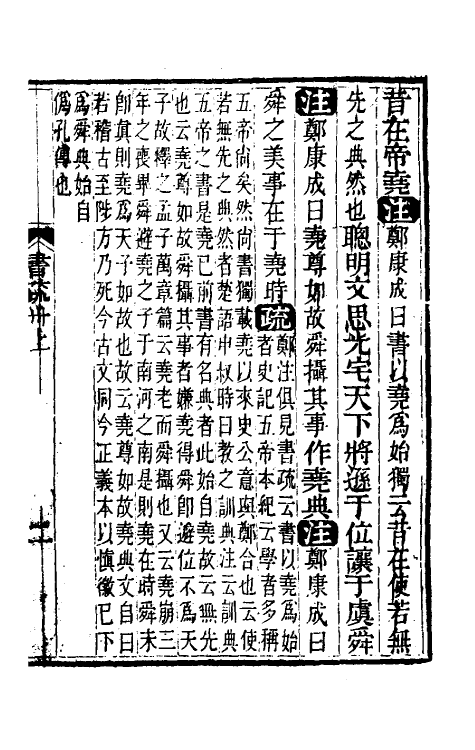 昔在帝堯注鄭康成曰書以堯爲始獨云昔在使若無
先之典然也聰明文思光宅天下將遜于位讓于虞舜
注鄭康成曰堯尊如故舜攝其事作堯典注鄭康成曰
舜之美事在于堯時疏鄭注俱見書疏云書以堯爲始
者史記五帝本紀云學者多稱
五帝尙矣然尙書獨載堯以來史公意與鄭合也云使
若無先之典然者楚語申叔時曰教之訓典注云訓典
五帝之書是堯已前書有名典者此始自堯故云無先
也云堯尊如故舜攝其事者嫌堯得舜卽遜位不爲天
子故釋之孟子萬章篇云堯老而舜攝也又云堯崩三
年之喪畢舜避堯之子于南河之南是則堯在時舜未
卽眞則堯爲天子如故也故云堯尊如故堯典文自曰
若稽古至陟方乃死今古文同今正義本以愼徽已下
爲舜典始自
僞孔傳也
書疏卅上